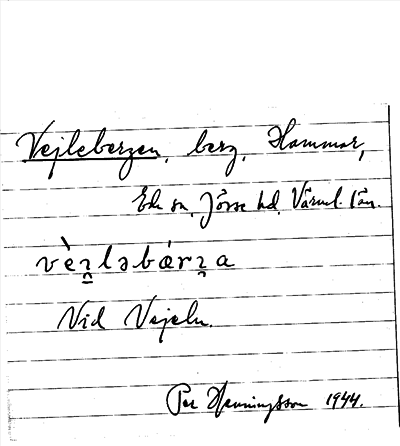 Vejlebergen, berg, Hammar,
Eds sn, Jösse hd, Värml. län.
Vid Vejeln.
Per Henningsson 1944.